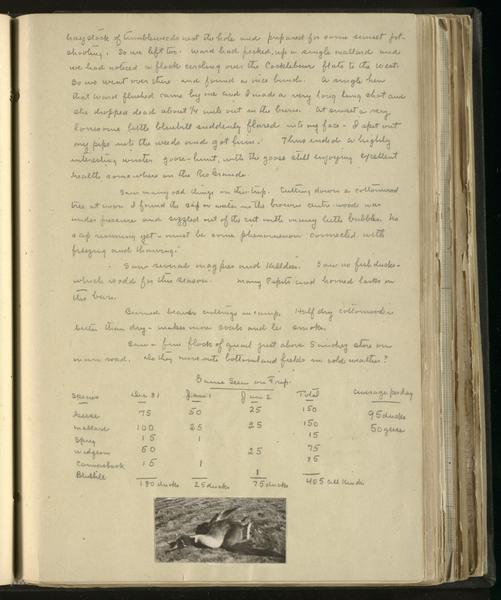 haystack of tumbleweeds next the hole and prepared for some sunset pot-
shooting. So we left too. Ward had picked up a single mallard and
we had noticed a flock circling over the Cocklebur flats to the West.
So we went over there and found a nice bunch. A single hen
that Ward flushed came by me and I made a very long lung shot and
she dropped dead about 1/4 mile out in the burrs. At sunset a very
lonesome little bluebill suddenly flared into my face - I spit out
my pipe into the weeds and got him. Thus ended a highly
interesting winter goose-hunt, with the geese still enjoying excellent
health somewhere on the Rio Grande.
Saw many odd things on this trip. Cutting down a cottonwood
tree at noon I found the sap or water in the brown center-wood was
under pressure and sizzled out of the cut with many little bubbles. No
sap running yet - must be some phenomenon connected with
freezing and thawing.
Saw several magpies and killdeer. Saw no fish ducks -
which is odd for this season. Many Pipits and horned larks on
the bars.
Burned beaver cuttings in camp. Half dry cottonwood is
better than dry - makes more coals and less smoke.
Saw a fine flock of quail just above Sanchez store on
main road. Do they move into bottomland fields in cold weather?
Game Seen on Trip.
Species Dec 31 Jan 1 Jan 2 Total average per day
Geese 75 50 25 150 95 ducks
mallard 100 25 25 150 50 geese
Sprig 15 1 15
widgeon 50 25 75
Canvasback 15 1
Bluebill 1
180 ducks 25 ducks 75 ducks 405 all kinds